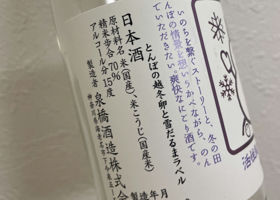 いのちを繋ぐストーリーと、冬の田
んぼの情景を想い浮かべながら、のん
でいただきたい。爽快なにごり酒です。
とんぼの越冬卵と雪だるまラベル
日本酒
原材料名 米(国産)、米こうじ(国産米)
精米歩合 70%
アルコール分 15度
製造者 泉橋酒造株式会
神奈川県海老名市下今泉五
製造年月
活性